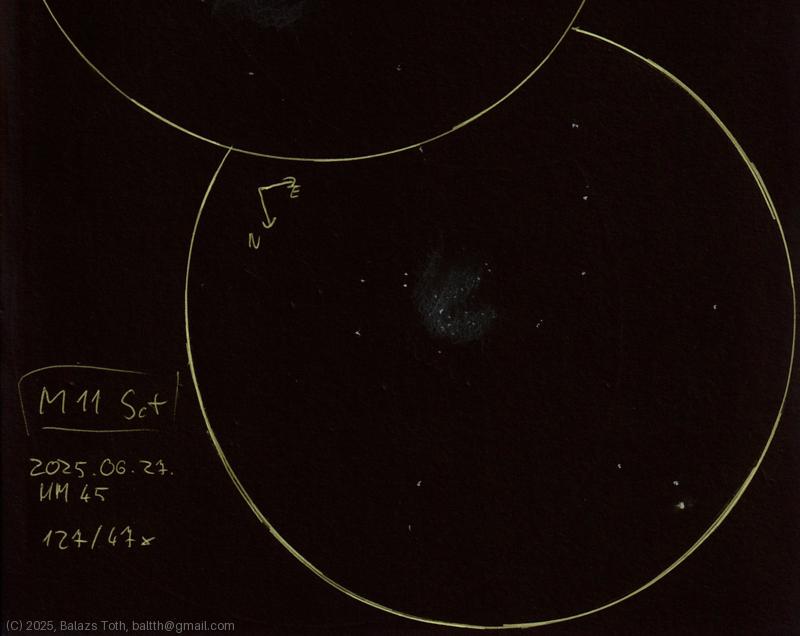 E
N
M 11 Sct
2025.06.27.
HM 45
127/47x
(C) 2025, Balazs Toth, baltth@gmail.com